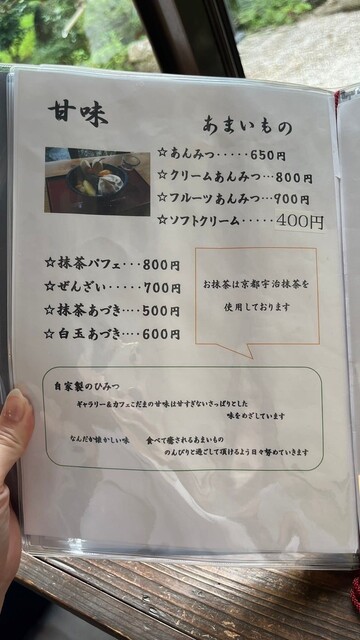 甘味
あまいもの
☆あんみつ・・・・・650円
☆クリームあんみつ…800円
☆フルーツあんみつ…900円
☆ソフトクリーム・・・・・400円
☆抹茶パフェ・・・800円
☆ぜんざい・・・・・700円
☆抹茶あづき・・・・500円
☆白玉あづき・・・・600円
お抹茶は京都宇治抹茶を
使用しております
自家製のひみつ
ギャラリー&カフェこだまの甘味は甘すぎないさっぱりとした
味をめざしています
なんだか懐かしい味　食べて癒されるあまいもの
のんびりと過ごして頂けるよう日々努めていきます